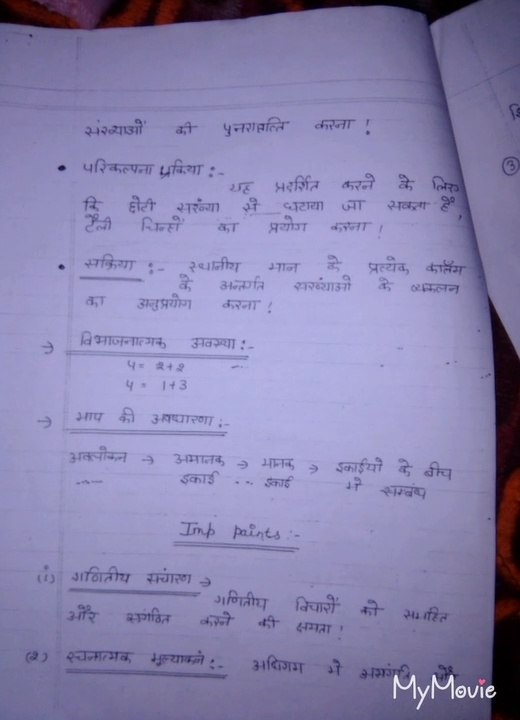 संख्याओं की पुनरावृत्ति करना !
• परिकल्पना प्रक्रिया :-
यह प्रदर्शित करने के लिए
कि छोटी संख्या से घटाया जा सकता है,
टैली चिन्हों का प्रयोग करना !
• सक्रिया :- स्थानीय मान के प्रत्येक कॉलम
के अन्तर्गत संख्याओं के व्यकलन
का अनुप्रयोग करना !
→ विभाजनात्मक अवस्था :-
4 = 2+2
4 = 1+3
→ माप की अवधारणा :-
अवलोकन → अमानक → मानक → इकाईयों के बीच
इकाई इकाई में सम्बंध
Imp points :-
(1) गणितीय संचारण →
गणितीय विचारों को समाहित
और संगठित करने की क्षमता !
(2) रचनात्मक मूल्याकनं :- अधिगम में
3
MyMovie